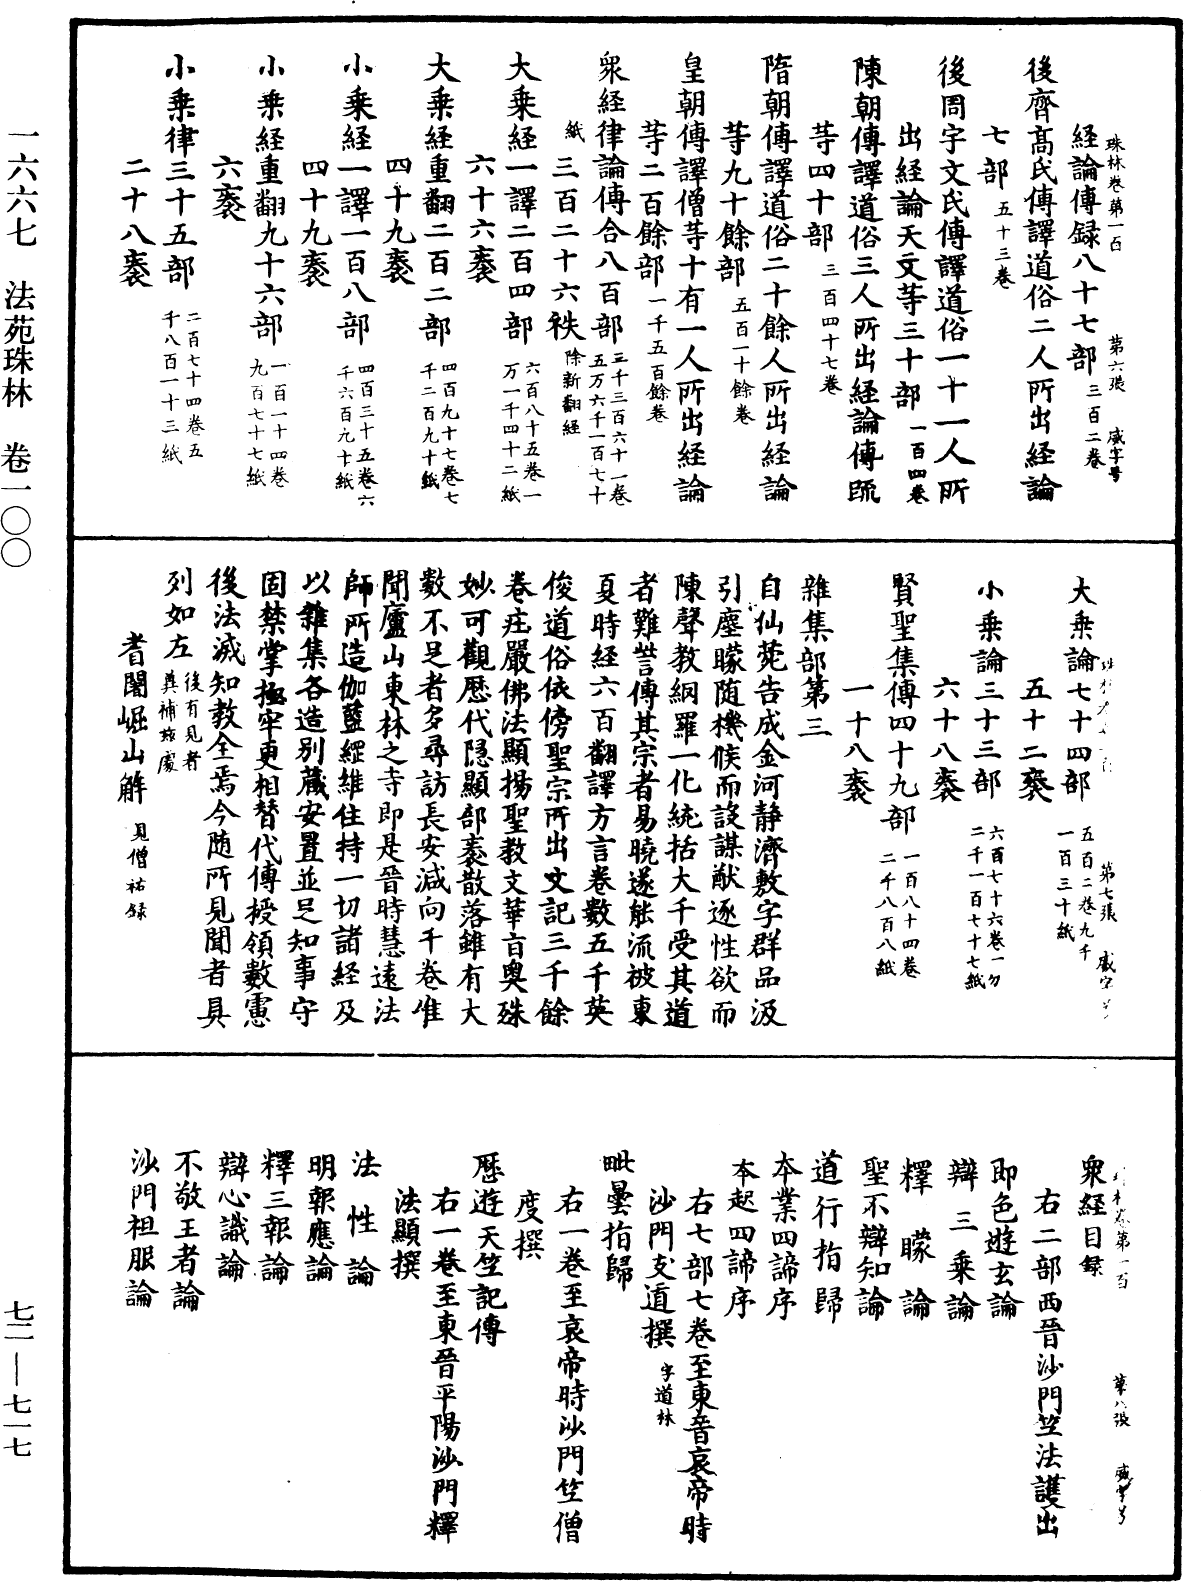 一六六七　法苑珠林　卷一〇〇
七二—七一七
珠林卷第一百　第六張　咸字号
経論傳録八十七部三百二卷
後齊髙氏傳譯道俗二人所出経論
七部五十三卷
後周宇文氏傳譯道俗一十一人所
出経論天文等三十部一百四卷
陳朝傳譯道俗三人所出経論傳䟽
等四十部三百四十七卷
隋朝傳譯道俗二十餘人所出経論
等九十餘部五百一十餘卷
皇朝傳譯僧等十有一人所出経論
等二百餘部一千五百餘卷
衆経律論傳合八百部三千三百六十一卷
五万六千一百七十
紙三百二十六袟除新翻経
大乗経一譯二百四部六百八十五卷一
万一千四十二紙
六十六袠
大乗経重翻二百二部四百九十七卷七
千二百九十紙
四十九袠
小乗経一譯一百八部四百三十五卷六
千六百九十紙
四十九袠
小乗経重翻九十六部一百一十四卷
九百七十七紙
六袠
小乗律三十五部二百七十四卷五
千八百一十三紙
二十八袠
第七張　咸字
大乗論七十四部五百二卷九千
一百三十紙
五十二袠
小乗論三十三部六百七十六卷一万
二千一百七十七紙
六十八袠
賢聖集傳四十九部一百八十四卷
二千八百八紙
一十八袠
雜集部第三
自仙菀告成金河静濟敷字群品汲
引塵矇随機候而設謀猷逐性欲而
陳聲教綱羅一化統括大千受其道
者難訾傳其宗者易曉遂能流被東
夏時経六百翻譯方言卷數五千英
俊道俗依傍聖宗所出文記三千餘
卷㽵嚴佛法顯揚聖教文華㫖奥殊
妙可觀歴代隠顯部袠散落雖有大
數不足者多尋訪長安減向千卷惟
聞廬山東林之寺即是晉時慧遠法
師所造伽藍縚維住持一切諸経及
以雜集各造别藏安置並足知事守
固禁掌極牢更相替代傳授領數慮
後法滅知教全焉今随所見聞者具
列如左後有見者
冀補兹處
耆闍崛山解見僧祐録
第一百　第八張　咸字号
衆経目録
右二部西晉沙門竺法護出
即色遊玄論
辯三乗論
釋矇論
聖不辯知論
道行指歸
本業四諦序
本起四諦序
右七部七卷至東晉哀帝時
沙門支遁撰字道林
毗曇指歸
右一卷至哀帝時沙門竺僧
度撰
歴遊天竺記傳
右一卷至東晉平陽沙門釋
法顯撰
法性論
明報應論
釋三報論
辯心識論
不敬王者論
沙門袒服論